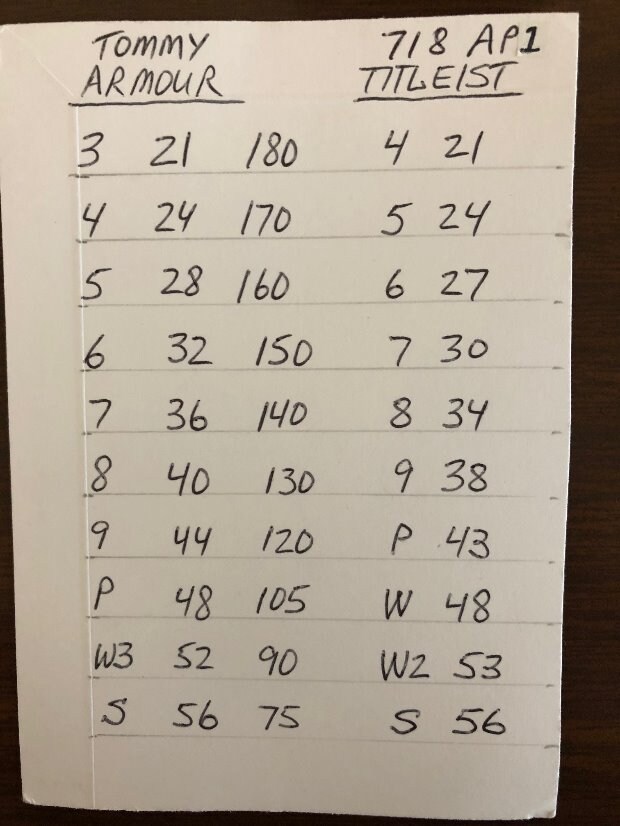 TOMMY 718 AP1
ARMOUR TITLEIST
3 21 180 4 21
4 24 170 5 24
5 28 160 6 27
6 32 150 7 30
7 36 140 8 34
8 40 130 9 38
9 44 120 P 43
P 48 105 W 48
W3 52 90 W2 53
S 56 75 S 56